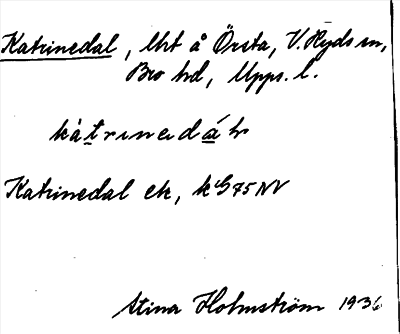 Katrinedal, lht å Örsta, V. Ryds sn,
Bro hd, Upps. l.
Katrinedal ek, k G 75 NV
Stina Holmström 1936